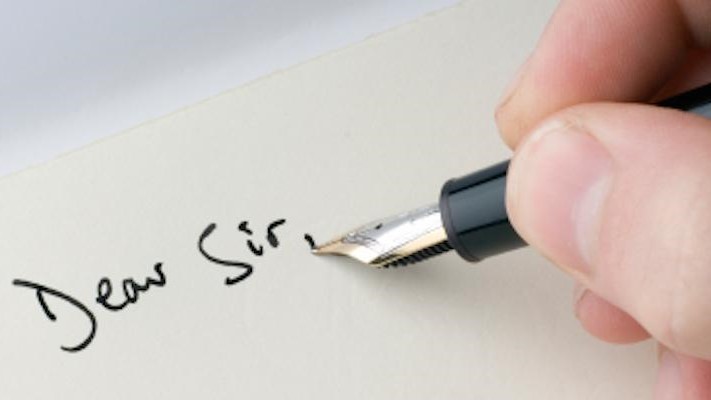 Dear Sir,